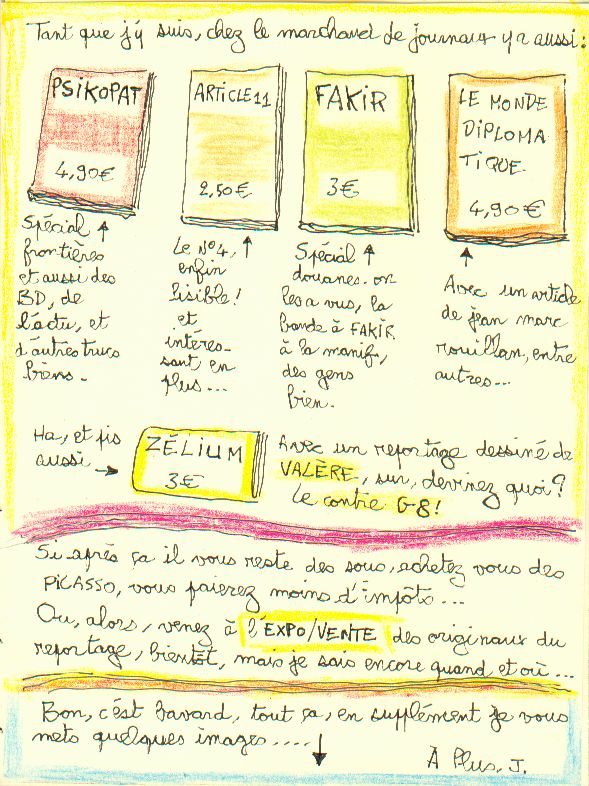 Tant que j'y suis, chez le marchand de journaux y'a aussi:
PSIKOPAT
4,90€
ARTICLE 11
2,50€
FAKIR
3€
LE MONDE
DIPLOMA
TIQUE
4,90€
Spécial
frontières
et aussi des
BD, de
l'actu, et
d'autres trucs
biens.
Le N°4,
enfin
lisible!
et
intéres-
sant, en
plus...
Spécial
douanes. on
les a vus, la
bande à FAKIR
à la manif,
des gens
bien.
Avec un article
de jean marc
rouillan, entre
autres...
Ha, et pis
aussi
ZÉLIUM
3€
Avec un reportage dessiné de
VALÈRE, sur, devinez quoi?
Le contre G-8!
Si après ça il vous reste des sous, achetez vous des
PICASSO, vous paierez moins d'impôts...
Ou, alors, venez à l'EXPO/VENTE des originaux du
reportage, bientôt, mais je sais encore quand, et où...
Bon, c'est bavard, tout ça, en supplément je vous
mets quelques images.....
À Plus. J.